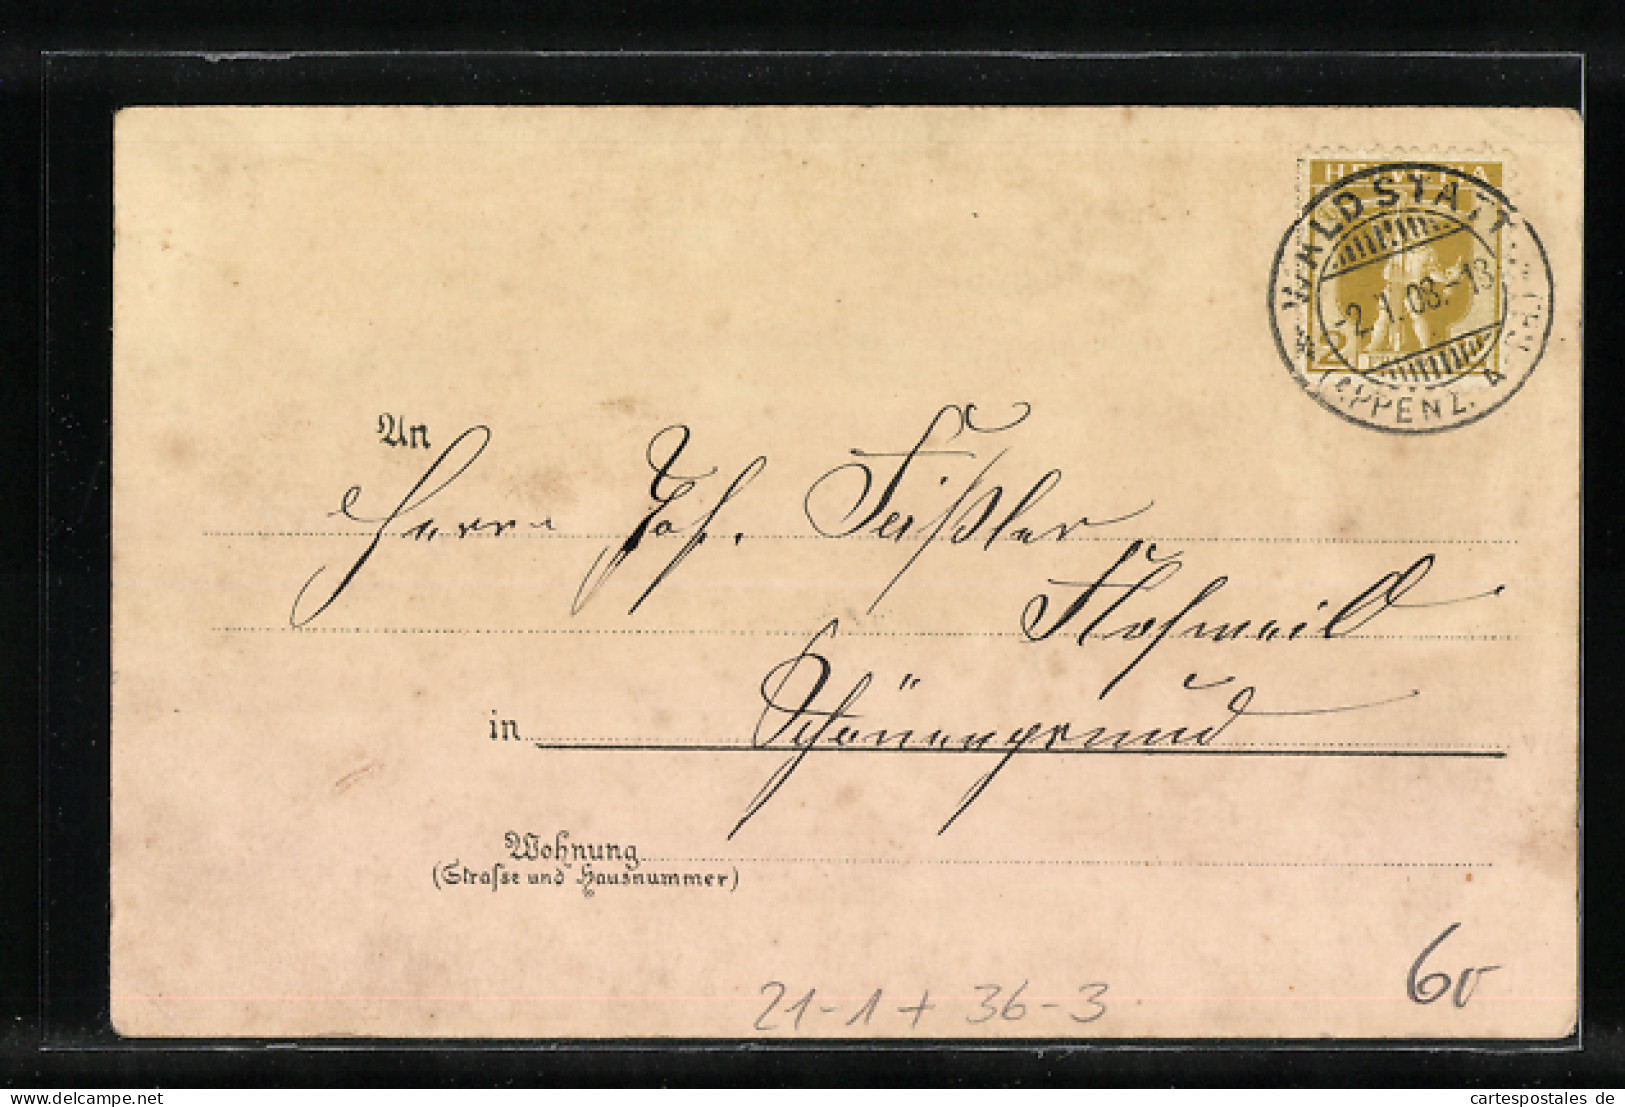 HELVETIA
WALDSTATT
-2.1.08.-18
(APPENZ. A. RH.)
2
An
Herrn Joh. Feißler
Hofweil
in Schönengrund
Wohnung
(Strasse und Hausnummer)
21-1 + 36-3
60
www.delcampe.net
cartespostales de